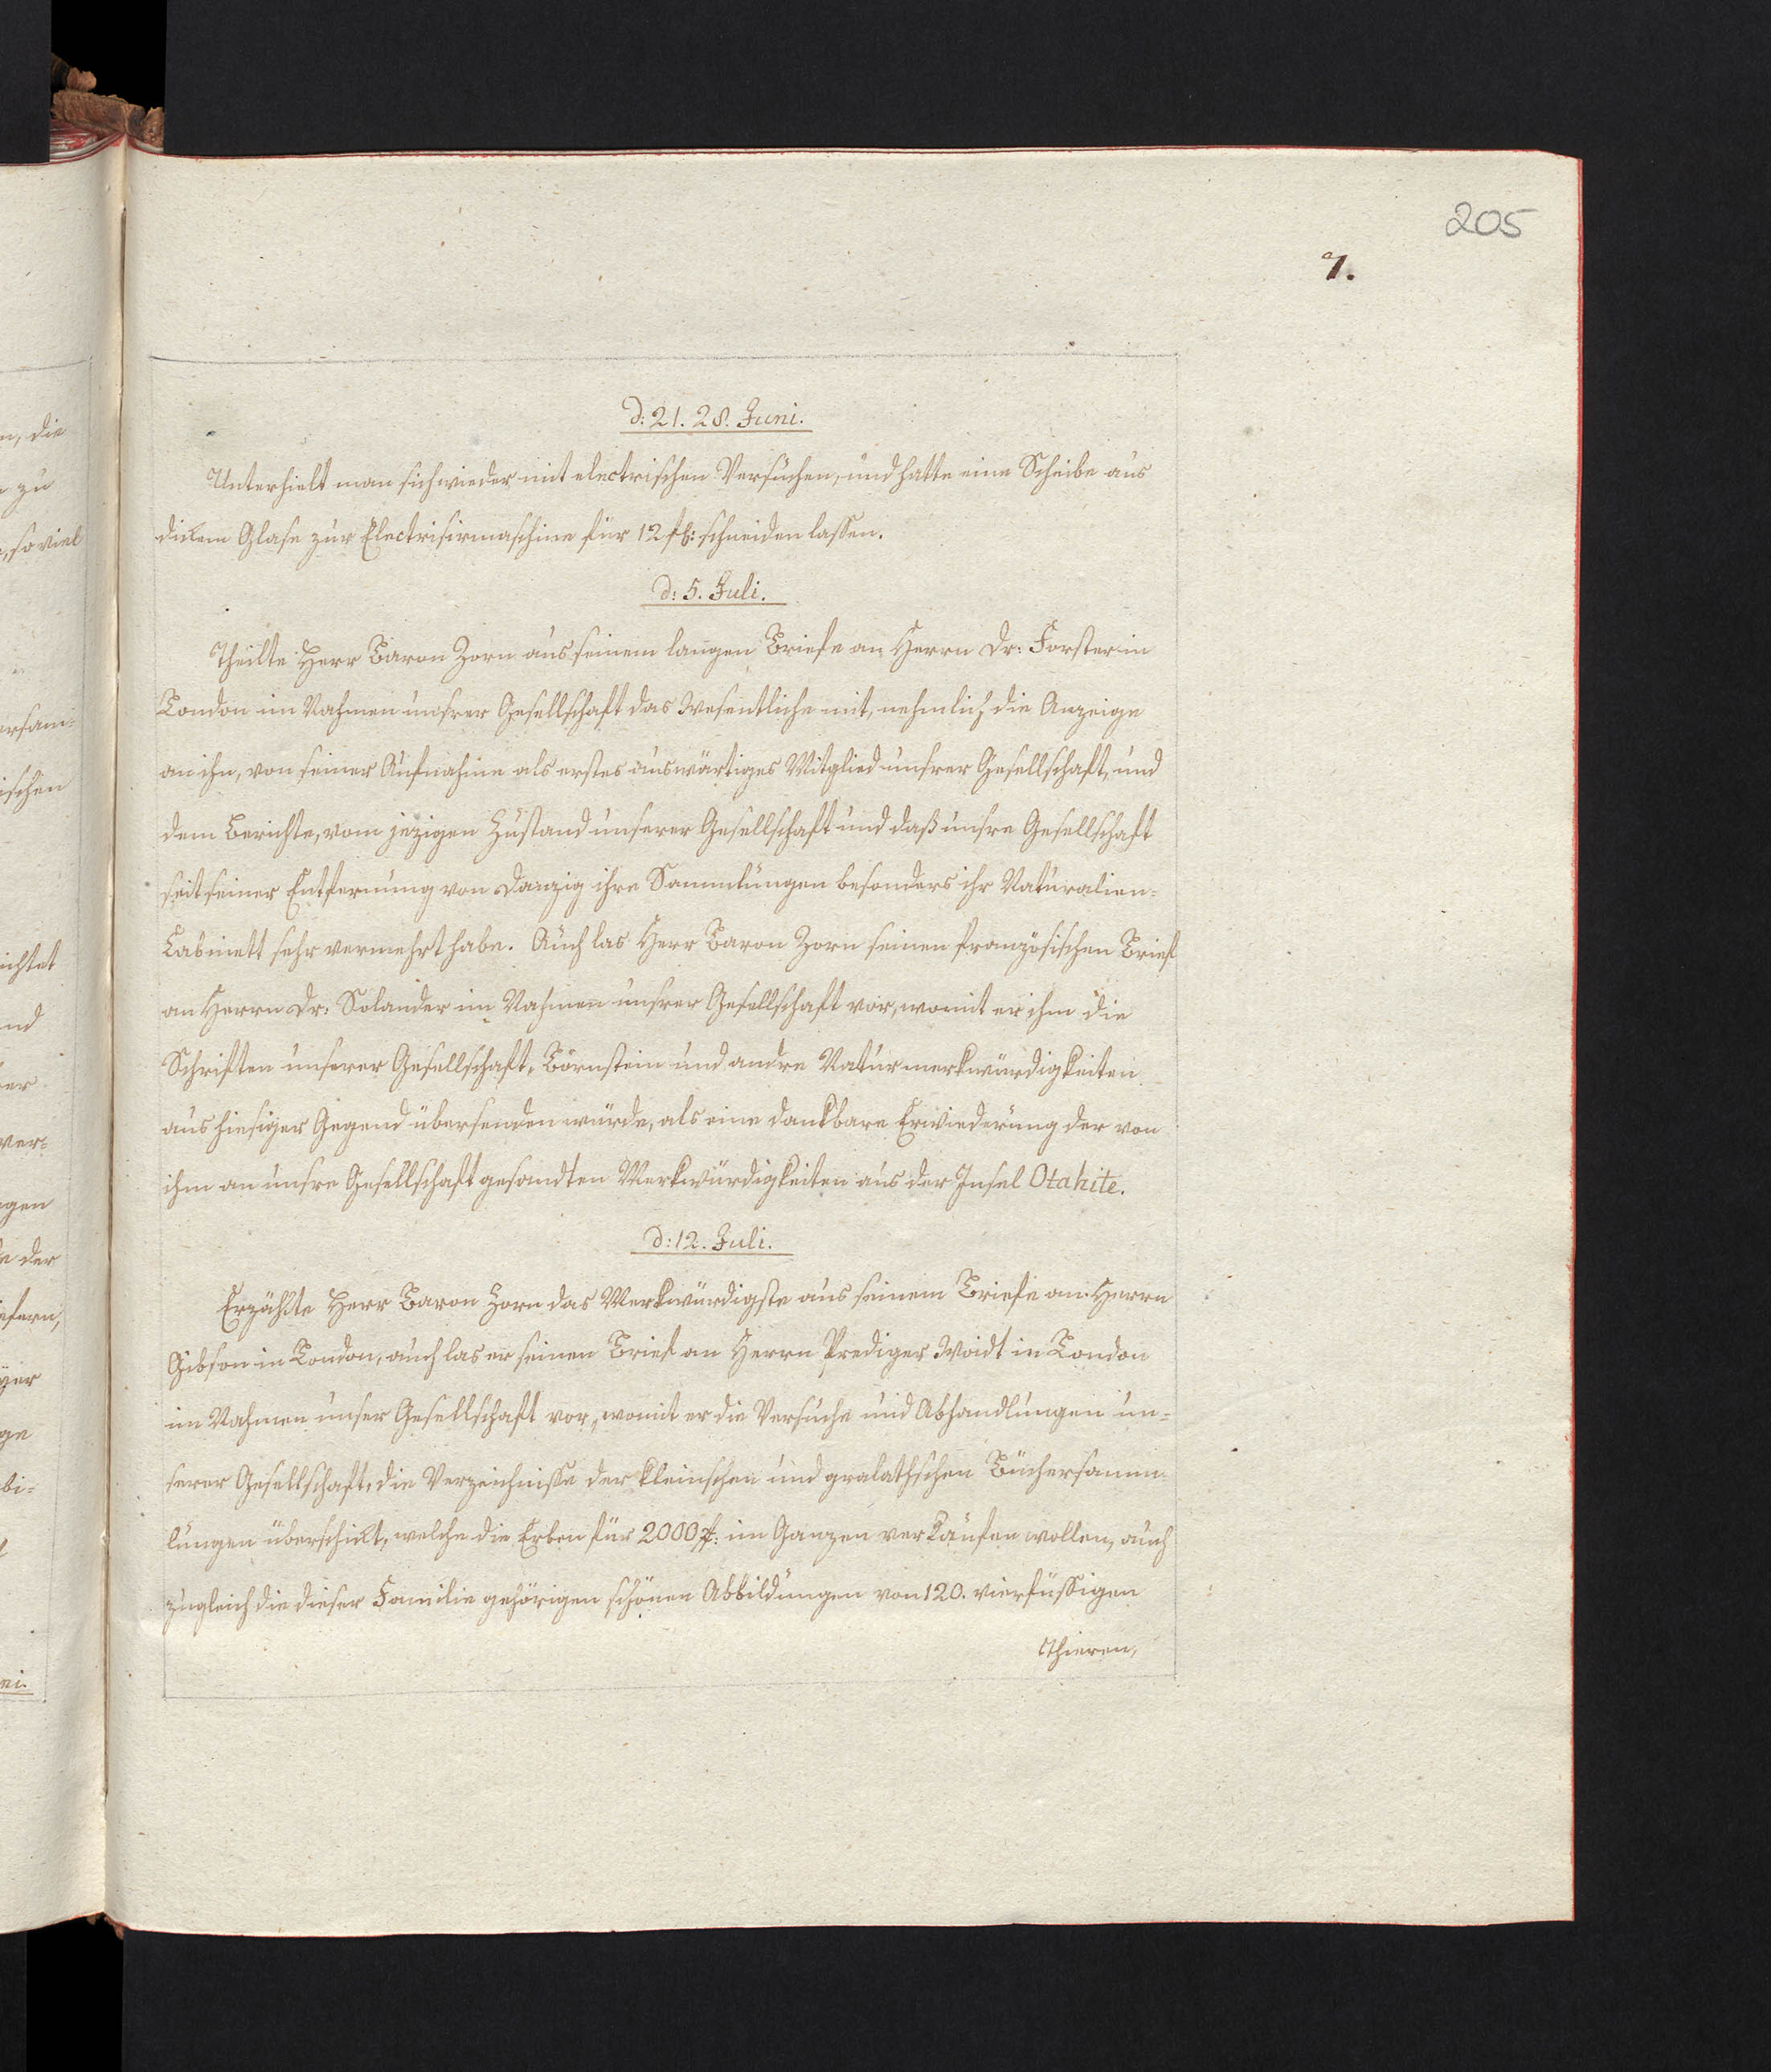 205
7.
d: 21. 28. Juni.
Unterhielt man sich wieder mit electrischen Versuchen, und hatte eine Scheibe aus
dickem Glase zur Electrisirmaschine für 12 fl: schneiden lassen.
d: 5. Juli.
Theilte Herr Baron Zorn aus seinem langen Briefe an Herrn Dr: Forster in
London im Nahmen unsrer Gesellschaft das Wesentliche mit, nehmlich die Anzeige
an ihn, von seiner Aufnahme als erstes auswärtiges Mitglied unsrer Gesellschaft, und
dem Berichte, vom jezigen Zustand unserer Gesellschaft und daß unsre Gesellschaft
seit seiner Entfernung von Danzig ihre Sammlungen besonders ihr Naturalien-
Cabinett sehr vermehrt habe. Auch las Herr Baron Zorn seinen französischen Brief
an Herrn Dr: Solander im Nahmen unsrer Gesellschaft vor, womit er ihm die
Schriften unserer Gesellschaft, Börnstein und andre Naturmerkwürdigkeiten
aus hiesiger Gegend übersenden würde, als eine dankbare Erwiederung der von
ihm an unsre Gesellschaft gesandten Merkwürdigkeiten aus der Insel Otahite.
d: 12. Juli.
Erzählte Herr Baron Zorn das Merkwürdigste aus seinem Briefe an Herrn
Gibson in London, auch las er seinen Brief an Herrn Prediger Woidt in London
im Nahmen unser Gesellschaft vor, womit er die Versuche und Abhandlungen un-
serer Gesellschaft, die Verzeichnisse der kleinschen und gralathschen Büchersamm-
lungen überschickt, welche die Erben für 2000 #: im Ganzen verkaufen wollen, auch
zugleich die dieser Familie gehörigen schönen Abbildungen von 120. vierfüssigen
Thieren,